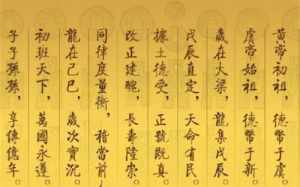 黃帝初祖，德帀于虞，
虞帝始祖，德帀于新。
歲在大梁，龍集戊辰，
戊辰直定，天命有民。
據土德受，正號即真。
改正建醜，長壽隆崇。
同律度量衡，稽當前人。
龍在己巳，歲次實沈，
初班天下，萬國永遵。
子子孫孫，享傳億年。